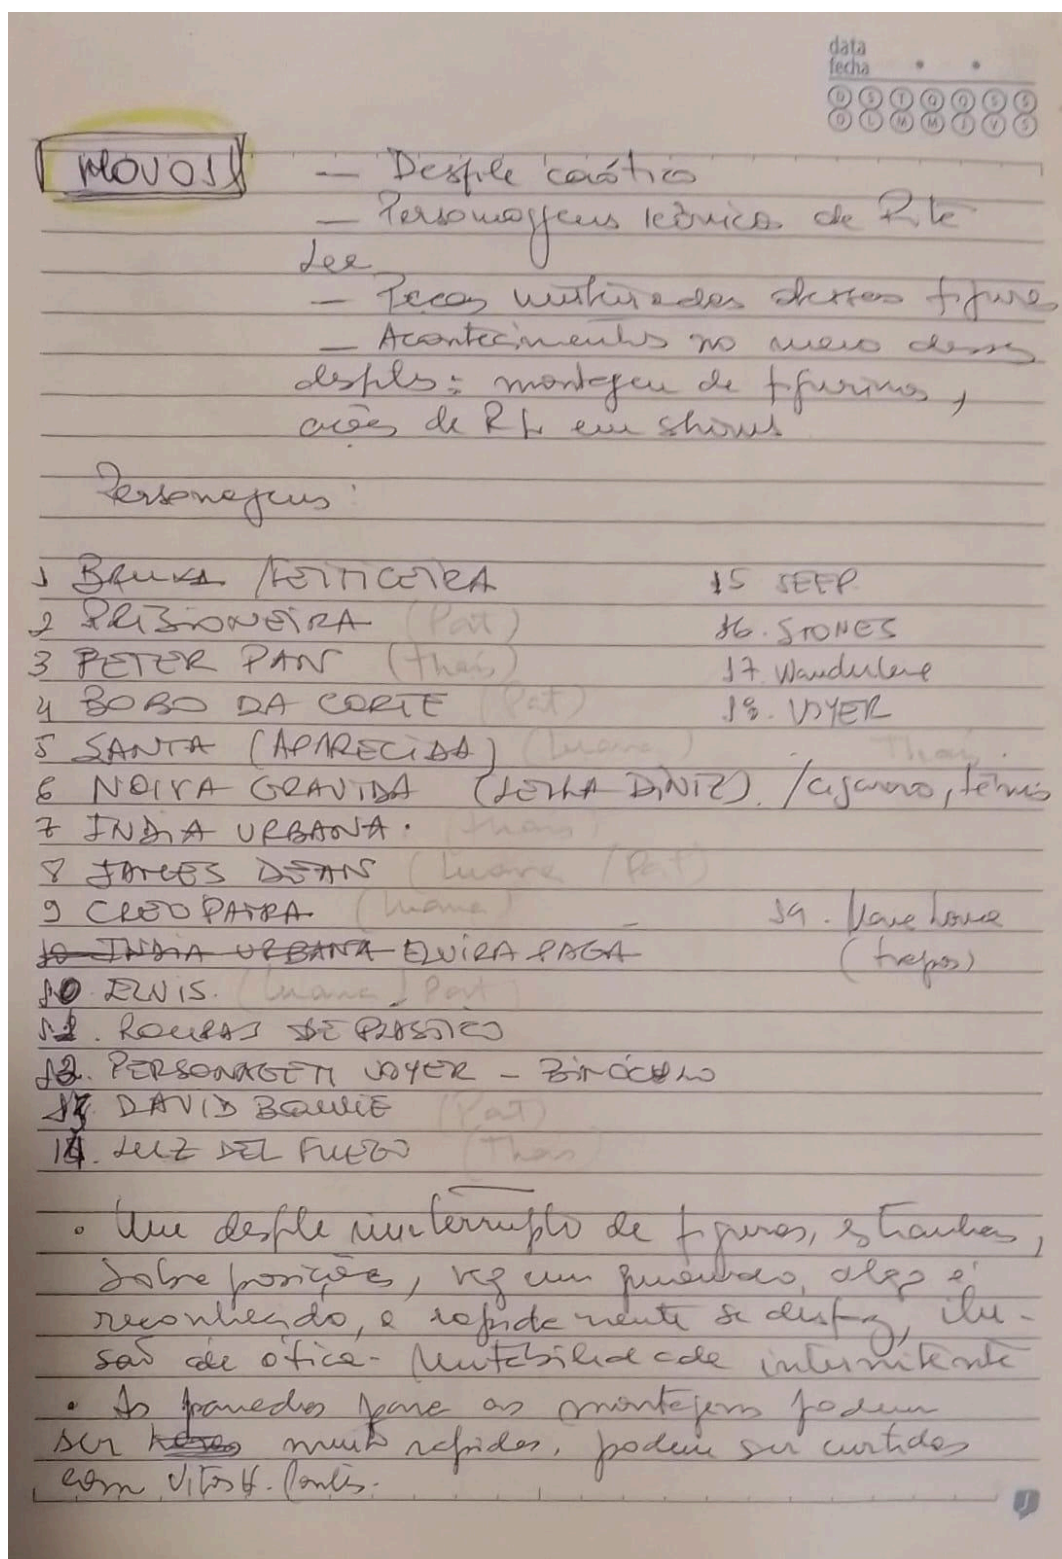 data
fecha
D S T Q Q S S
D L M M J V S
NOVOS
— Desfile caótico
— Personagens icônicas de Rita
Lee
— Peças misturadas dessas figuras
— Acontecimentos no meio desses
desfiles: montagem de figurinos,
ações de RL em shows
Personagens:
1 BRUXA / FEITICEIRA
2 PRISIONEIRA (Pat)
3 PETER PAN (Thais)
4 BOBO DA CORTE (Pat)
5 SANTA (APARECIDA) (Luana)
6 NOIVA GRAVIDA (LEILA DINIZ). / cigarro, tênis
7 INDIA URBANA. (Thais)
8 JAMES DEAN (Luana / Pat)
9 CLEOPATRA (Luana)
10 INDIA URBANA ELVIRA PAGÃ
10. ELVIS. (Luana / Pat)
11. ROUPAS DE PLASTICO
12. PERSONAGEM VOYER – BINÓCULO
13 DAVID BOWIE (Pat)
14. LUZ DEL FUEGO (Thais)
15
16. STONES
17. Wanderlene
18. VOYER
Thais
19.
(trapos)
• Um desfile ininterrupto de figuras, estranhas,
sobreposições, algo é
reconhecido, e rapidamente se desfaz, ilu-
são de ótica- Mutabilidade intermitente
• As paradas para as montagens podem
ser muito rapidas, podem ser curtidas
com